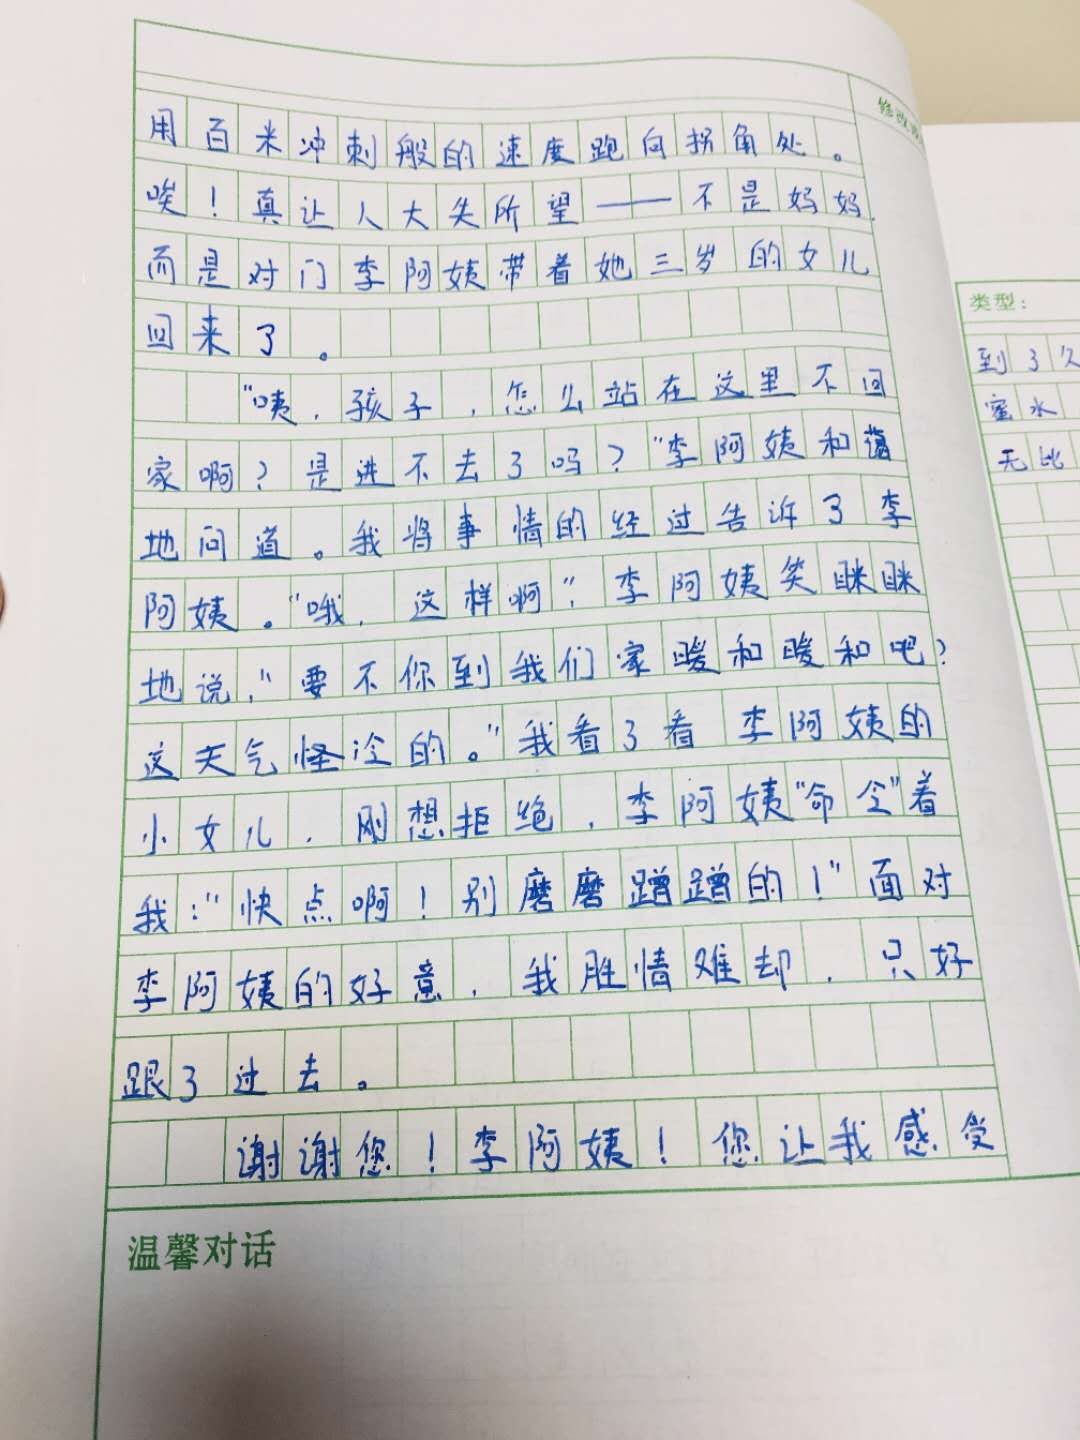 修改
用百米冲刺般的速度跑向拐角处。
唉！真让人大失所望——不是妈妈，
而是对门李阿姨带着她三岁的女儿
回来了。
“咦，孩子，怎么站在这里不回
家啊？是进不去了吗？”李阿姨和蔼
地问道。我将事情的经过告诉了李
阿姨。“哦，这样啊”，李阿姨笑眯眯
地说，“要不你到我们家暖和暖和吧？
这天气怪冷的。”我看了看李阿姨的
小女儿，刚想拒绝，李阿姨“命令”着
我：“快点啊！别磨磨蹭蹭的！”面对
李阿姨的好意，我胜情难却，只好
跟了过去。
谢谢您！李阿姨！您让我感受
温馨对话
类型：
到了久
蜜水
无比